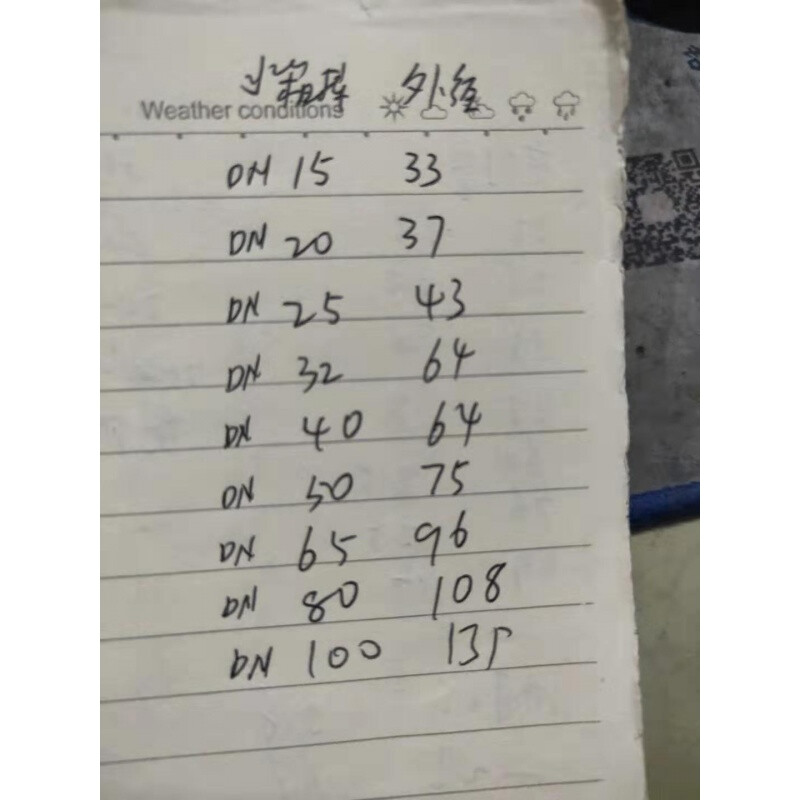 外径
Weather conditions
DN 15 33
DN 20 37
DN 25 43
DN 32 64
DN 40 64
DN 50 75
DN 65 96
DN 80 108
DN 100 135